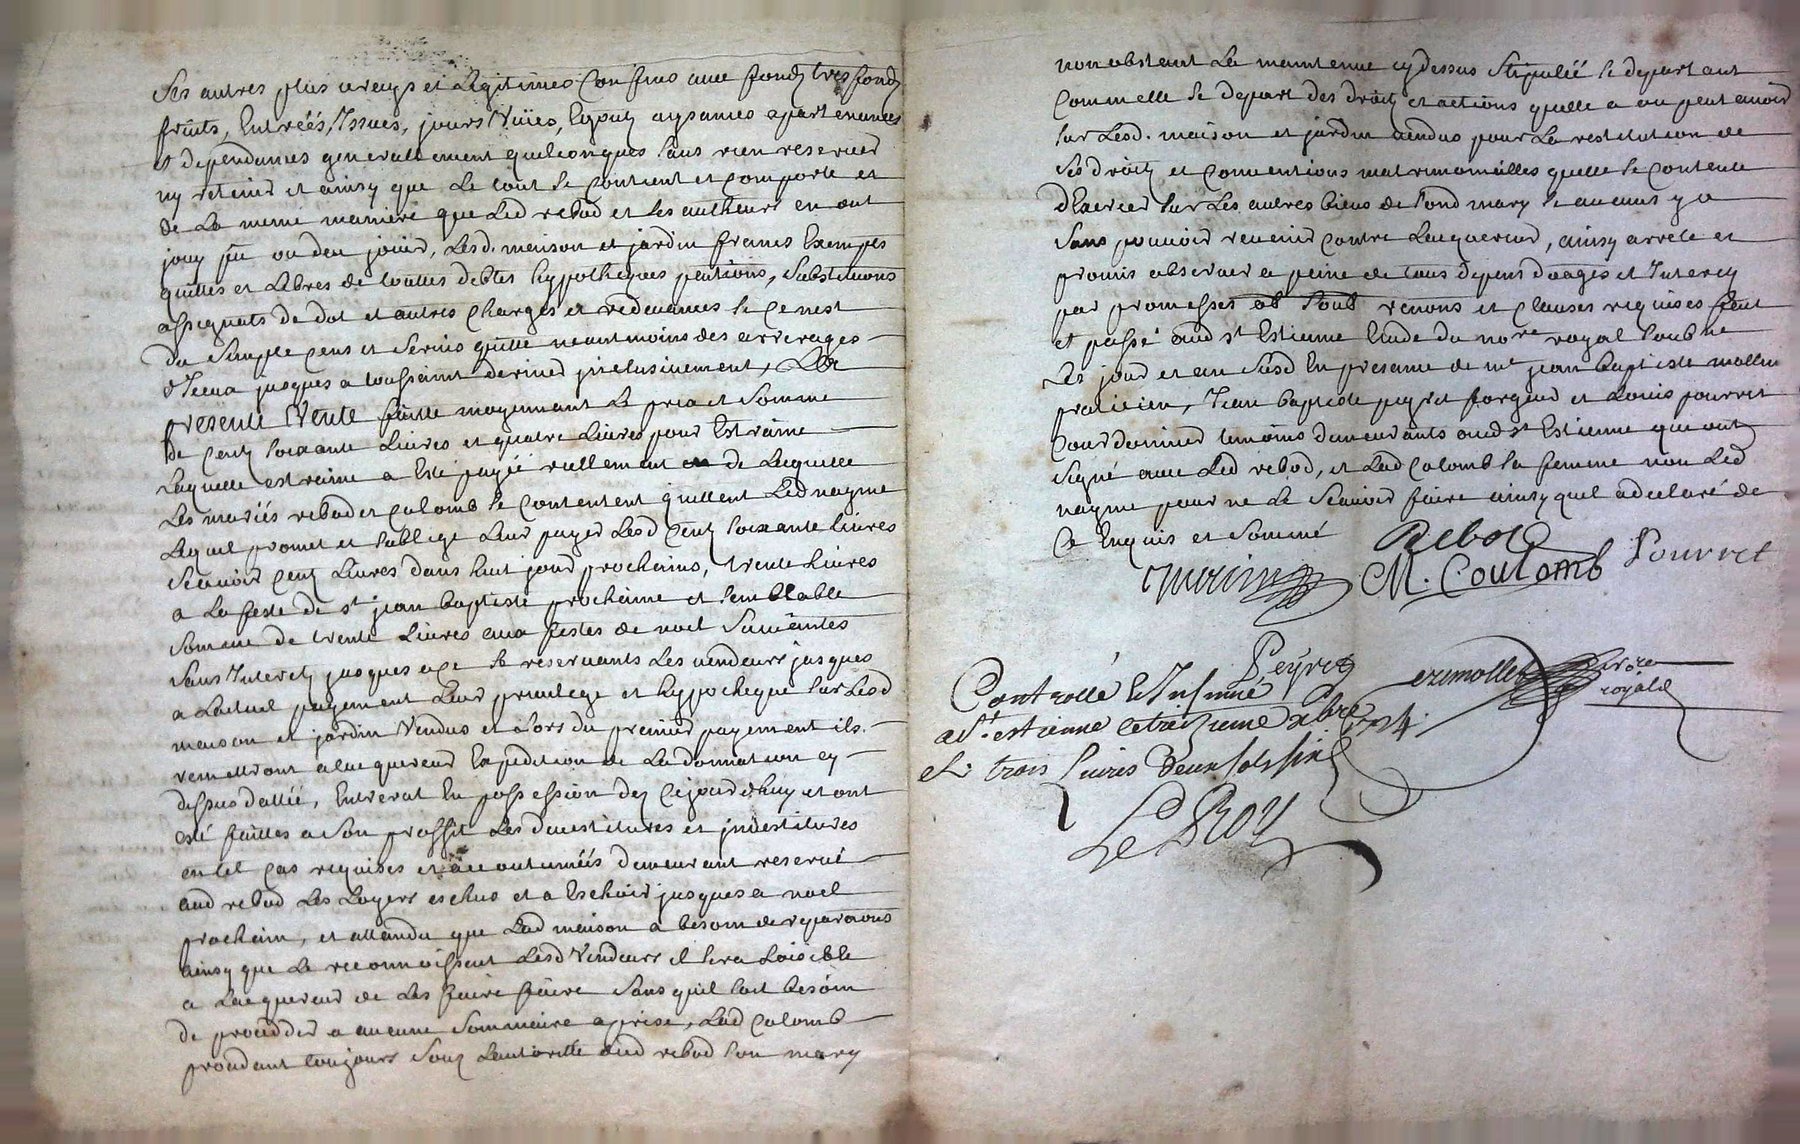 Ses autres plus vrays et Legitimes Confins avec fondz tres fondz
fruits, Entrééś, Issues, jours Vüies, Egoutz aysances apartenances
et dependances generallement quelconques sans rien reserver
ny retenir et ainsy que Le tout se Contient et Comporte et
de La meme maniere que Led rebod et ses autheurs en ont
jouy pû ou deu jouir, Lesd. maison et jardin francs Exempts
quittes et Libres de touttes debtes hypotheques pentions, substitutions
assignats de dot et autres charges et redevances si Ce nest
du simple Cens et Servis quitte neantmoins des arrerages
d'Iceux jusques a toussaint dernier inclusivement, La
presente Vente faitte moyennant Le prix et Somme
de Cent soixante Livres et quatre Livres pour Estraine
Laquelle estraine a Esté payée réellement de Laquelle
Les mariés rebod et Colomb se Contentent quittent Led nayme
Lequel promet et soblige Leur payer Lesd Cent soixante Livres
Scavoir Cent Livres dans huit jour prochains, trente Livres
a La feste de st jean baptiste prochaine et semblable
Somme de trente Livres aux festes de noel Suivantes
Sans Interetz jusques a Ce se reservants Les vendeurs jusques
a Lactuel payement Leur privilege et hyppotheque sur Lesd
maison et jardin Vendus et Lors du premier payement ils
remettront a Lacquereur Expedition de La donnation cy
dessus dattée, Entrerat En possession dez Cejourdhuy et ont
esté faittes a Son proffit Les devestitures et jnvestitures
en tel Cas requises et accoutumées demeurant reservé
aud rebod Les Loyers eschus et a Eschoir jusques a noel
prochain, et attendu que Lad maison a besoin de reparations
ainsy que Le reconnoissent Lesd Vendeurs il sera Loisible
a Lacquereur de Les faire faire Sans quil soit besoin
de proceder a aucune Sommaire aprise, Lad Colomb
procedant toujours Souz Lautorité dud rebod son mary
nonobstant La maintenue cydessus Stipulée se depart ont
Comme elle se depart des droitz et actions quelle a ou peut avoir
sur Lesd. maison et jardin vendus pour La restitution de
Ses droitz et Conventions matrimonialles quelle se Contente
dExercer sur Les autres biens de Sond mary si aucuns y a
Sans pouvoir revenir Contre Lacquereur, ainsy arreté et
promis observer a peine de tous depens domages et Interetz
par promesses ob soub renons et Clauses requises fait
et passé aud st Estienne Etude du nore royal soubné
Les jour et an Susd En presence de me jean baptiste mollin
praticien, Jean baptiste peyret forgeur et Louis pourret
Courdonnier temoins demeurants aud st Estienne qui ont
Signé avec Led rebod, et Lad Colomb sa femme non Led
nayme pour ne Le Scavoir faire ainsy quil a declaré de
Ce Enquis et Sommé
Rebod
M. Coulomb Pourret
Peyret
nore
royal
Controllé et Insinué
a St. estienne Le treizieme xbre
et trois Livres deux sols six
Le Roy